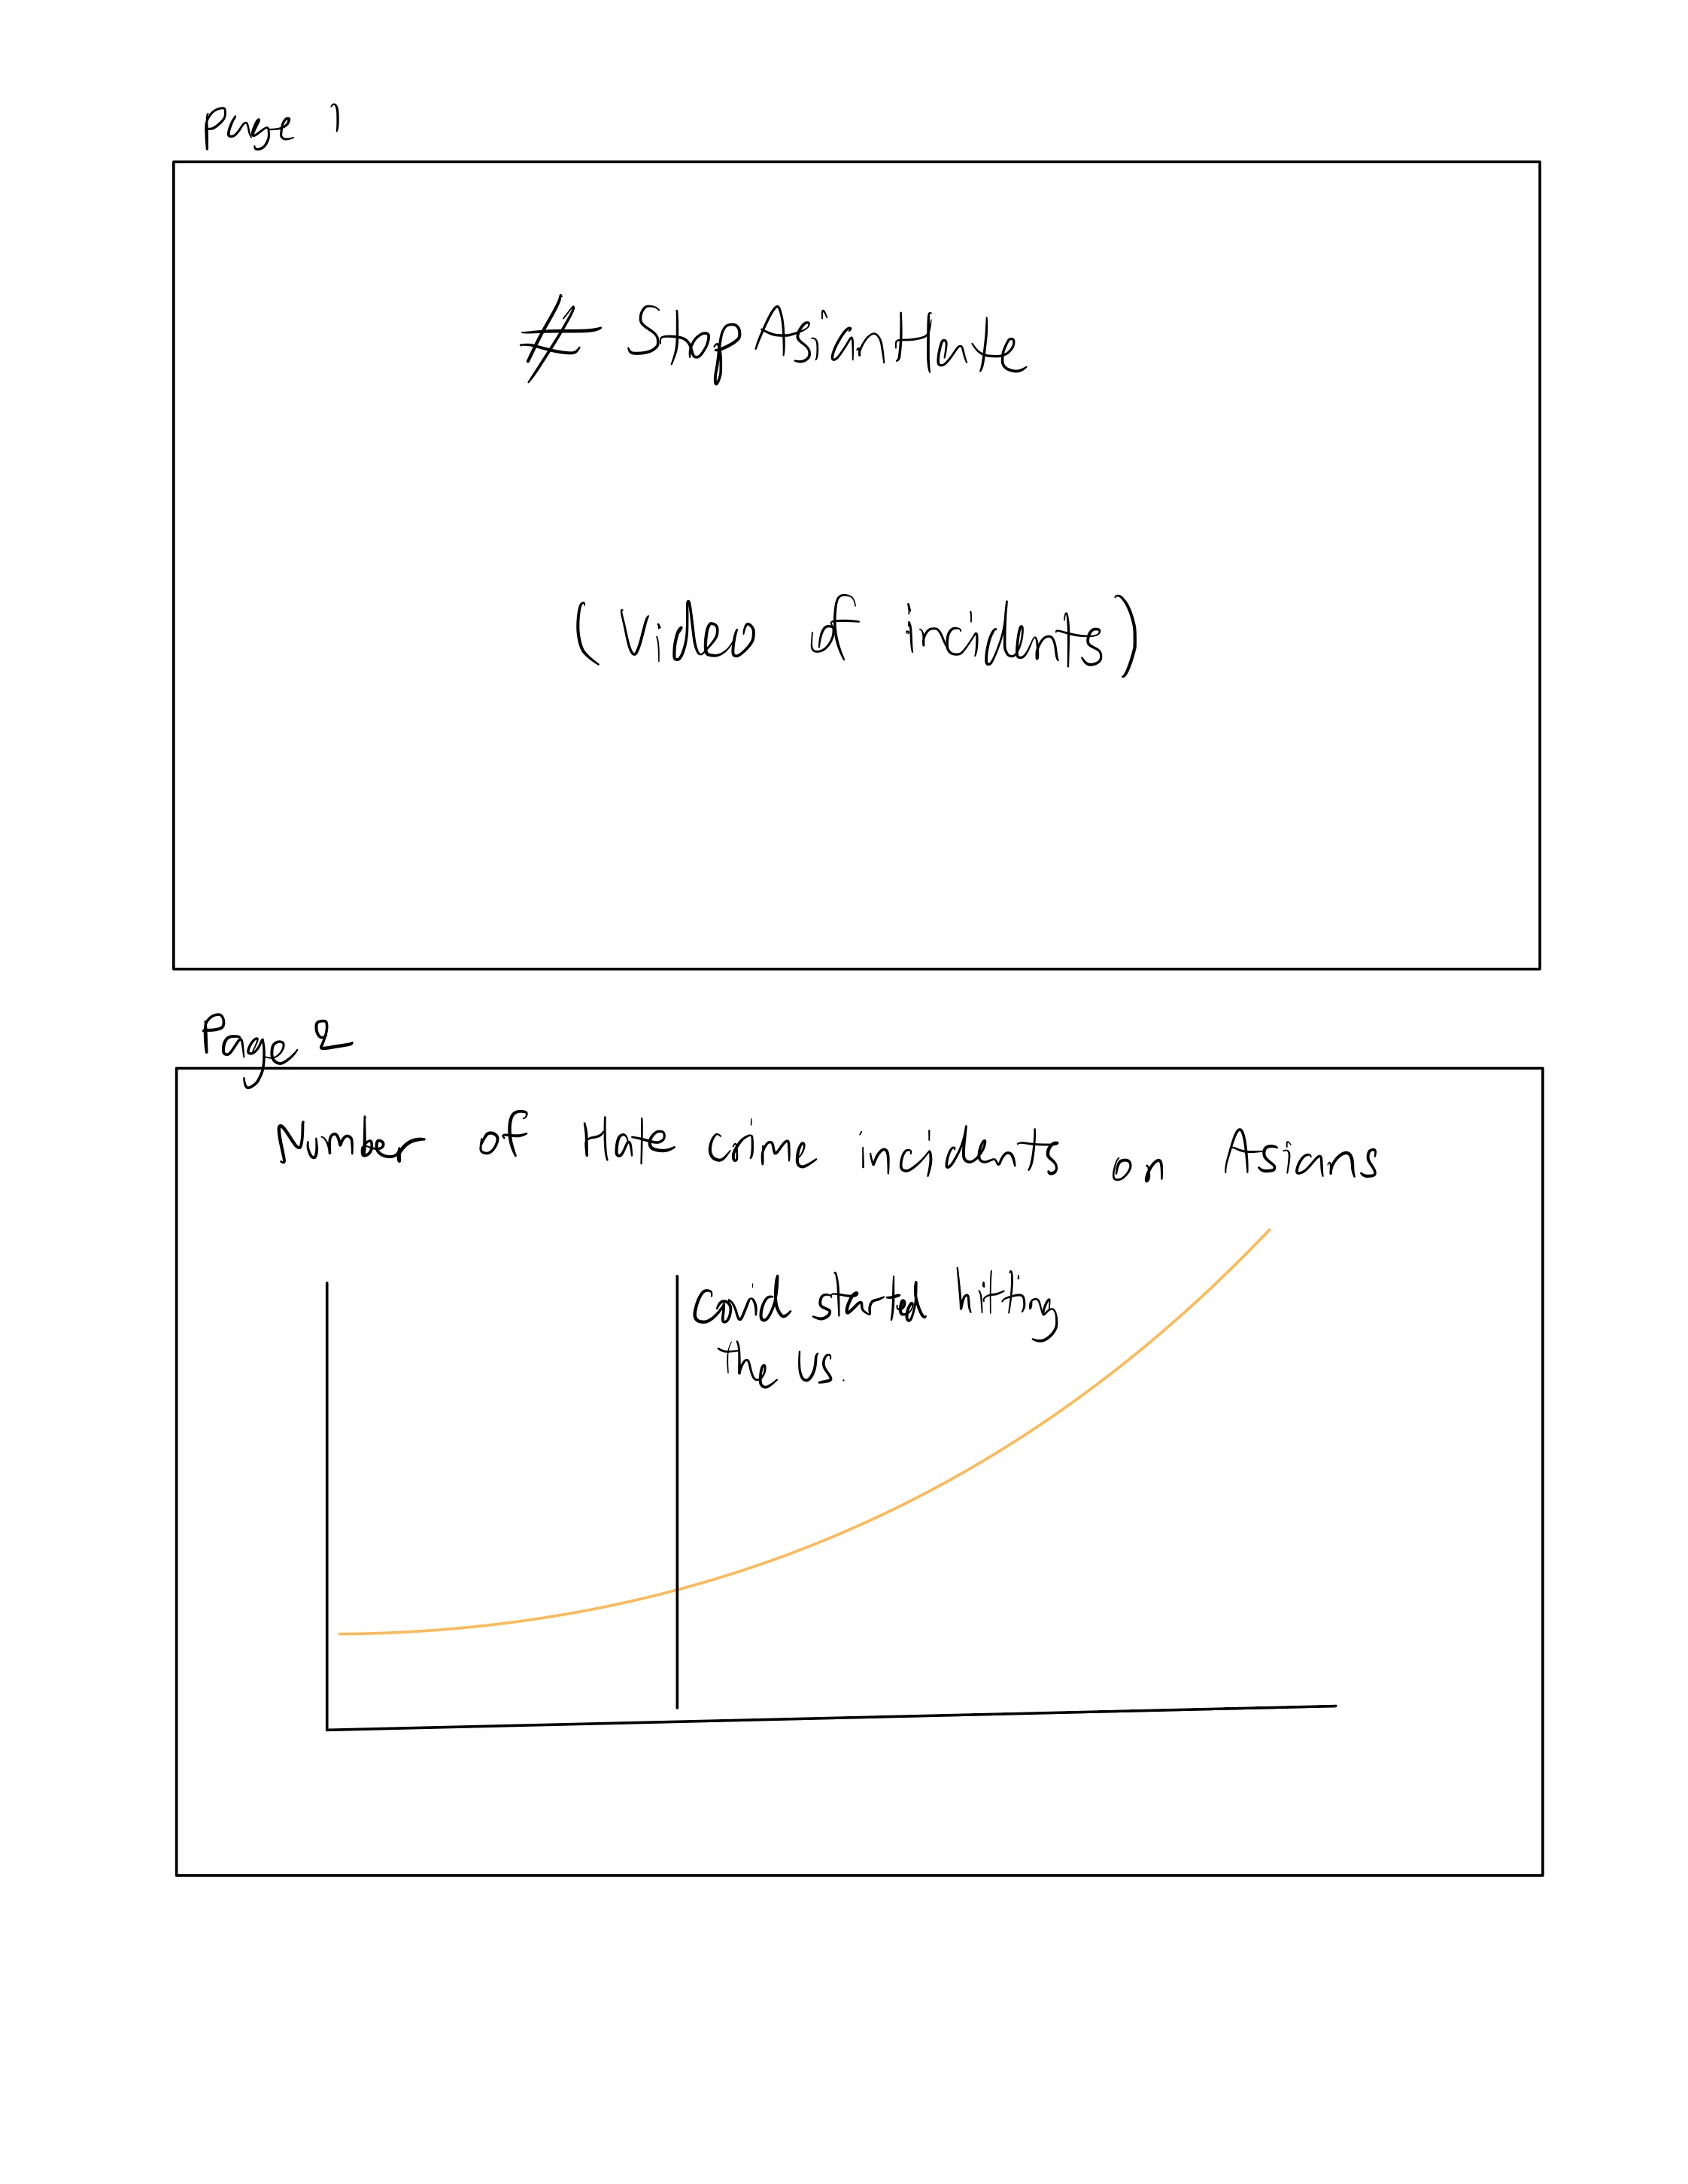 Page 1
# StopAsianHate
(Video of incidents)
Page 2
Number of Hate crime incidents on Asians
Covid started hitting
the US.